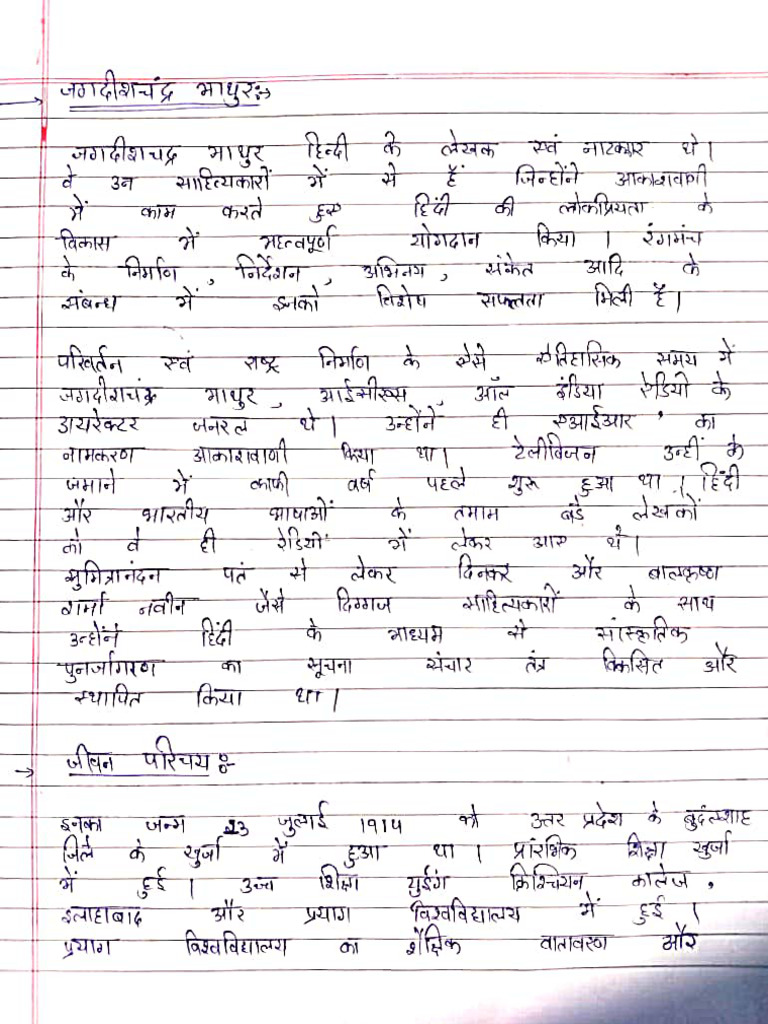 जगदीशचंद्र माथुर :→
जगदीशचद्र माथुर हिन्दी के लेखक एवं नाटककार थे।
वे उन साहित्यकारों में से हैं जिन्होंने आकाशवाणी
में काम करते हुए हिंदी की लोकप्रियता के
विकास में महत्वपूर्ण योगदान किया। रंगमंच
के निर्माण, निर्देशन, अभिनय, संकेत आदि के
संबन्ध में इनको विशेष सफलता मिली है।
परिवर्तन एवं राष्ट्र निर्माण के ऐसे ऐतिहासिक समय में
जगदीशचंद्र माथुर, आईसीएस, ऑल इंडिया रेडियो के
डायरेक्टर जनरल थे। उन्होंने ही एआईआर' का
नामकरण आकाशवाणी किया था। टेलीविजन उन्हीं के
जमाने में काफी वर्ष पहले शुरू हुआ था। हिंदी
और भारतीय भाषाओं के तमाम बड़े लेखकों
को वे ही रेडियों में लेकर आए थे।
सुमित्रानंदन पतं से लेकर दिनकर और बालकृष्ण
शर्मा नवीन जैसे दिग्गज साहित्यकारों के साथ
उन्होंने हिंदी के माध्यम से सांस्कृतिक
पुनर्जागरण का सूचना संचार तंत्र विकसित और
स्थापित किया था।
जीवन परिचय :-
इनका जन्म 23 जुलाई 1914 को उत्तर प्रदेश के बुदंलशाह
जिले के खुर्जा में हुआ था। प्रारंभिक शिक्षा खुर्जा
में हुई। उच्च शिक्षा युईंग क्रिश्चियन कालेज,
इलाहाबाद और प्रयाग विश्वविद्यालय में हुई।
प्रयाग विश्वविद्यालय का शैक्षिक वातावरण और